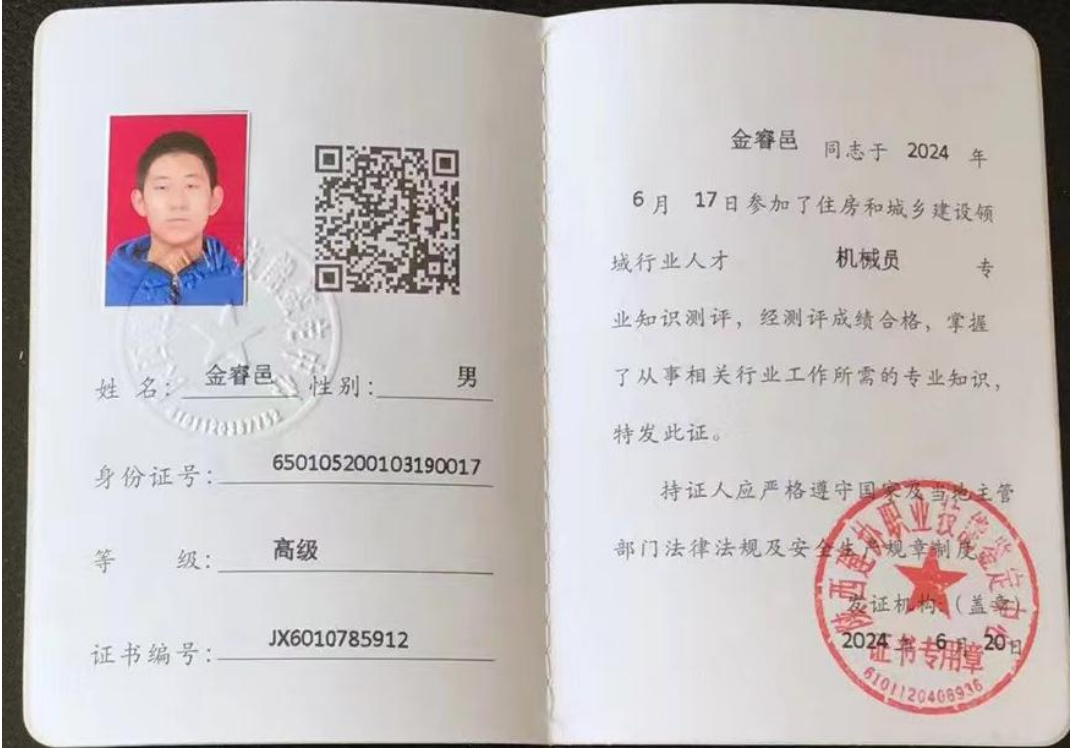 姓 名：金睿邑 性别：男
身份证号：650105200103190017
等 级：高级
证书编号：JX6010785912
金睿邑 同志于 2024 年
6月 17日参加了住房和城乡建设领
域行业人才 机械员 专
业知识测评，经测评成绩合格，掌握
了从事相关行业工作所需的专业知识，
特发此证。
持证人应严格遵守国家及当地主管
部门法律法规及安全生产规章制度。
发证机构：（盖章）
2024 年 6月 20日
陕西建协职业技能鉴定中心
证书专用章
6101120408936